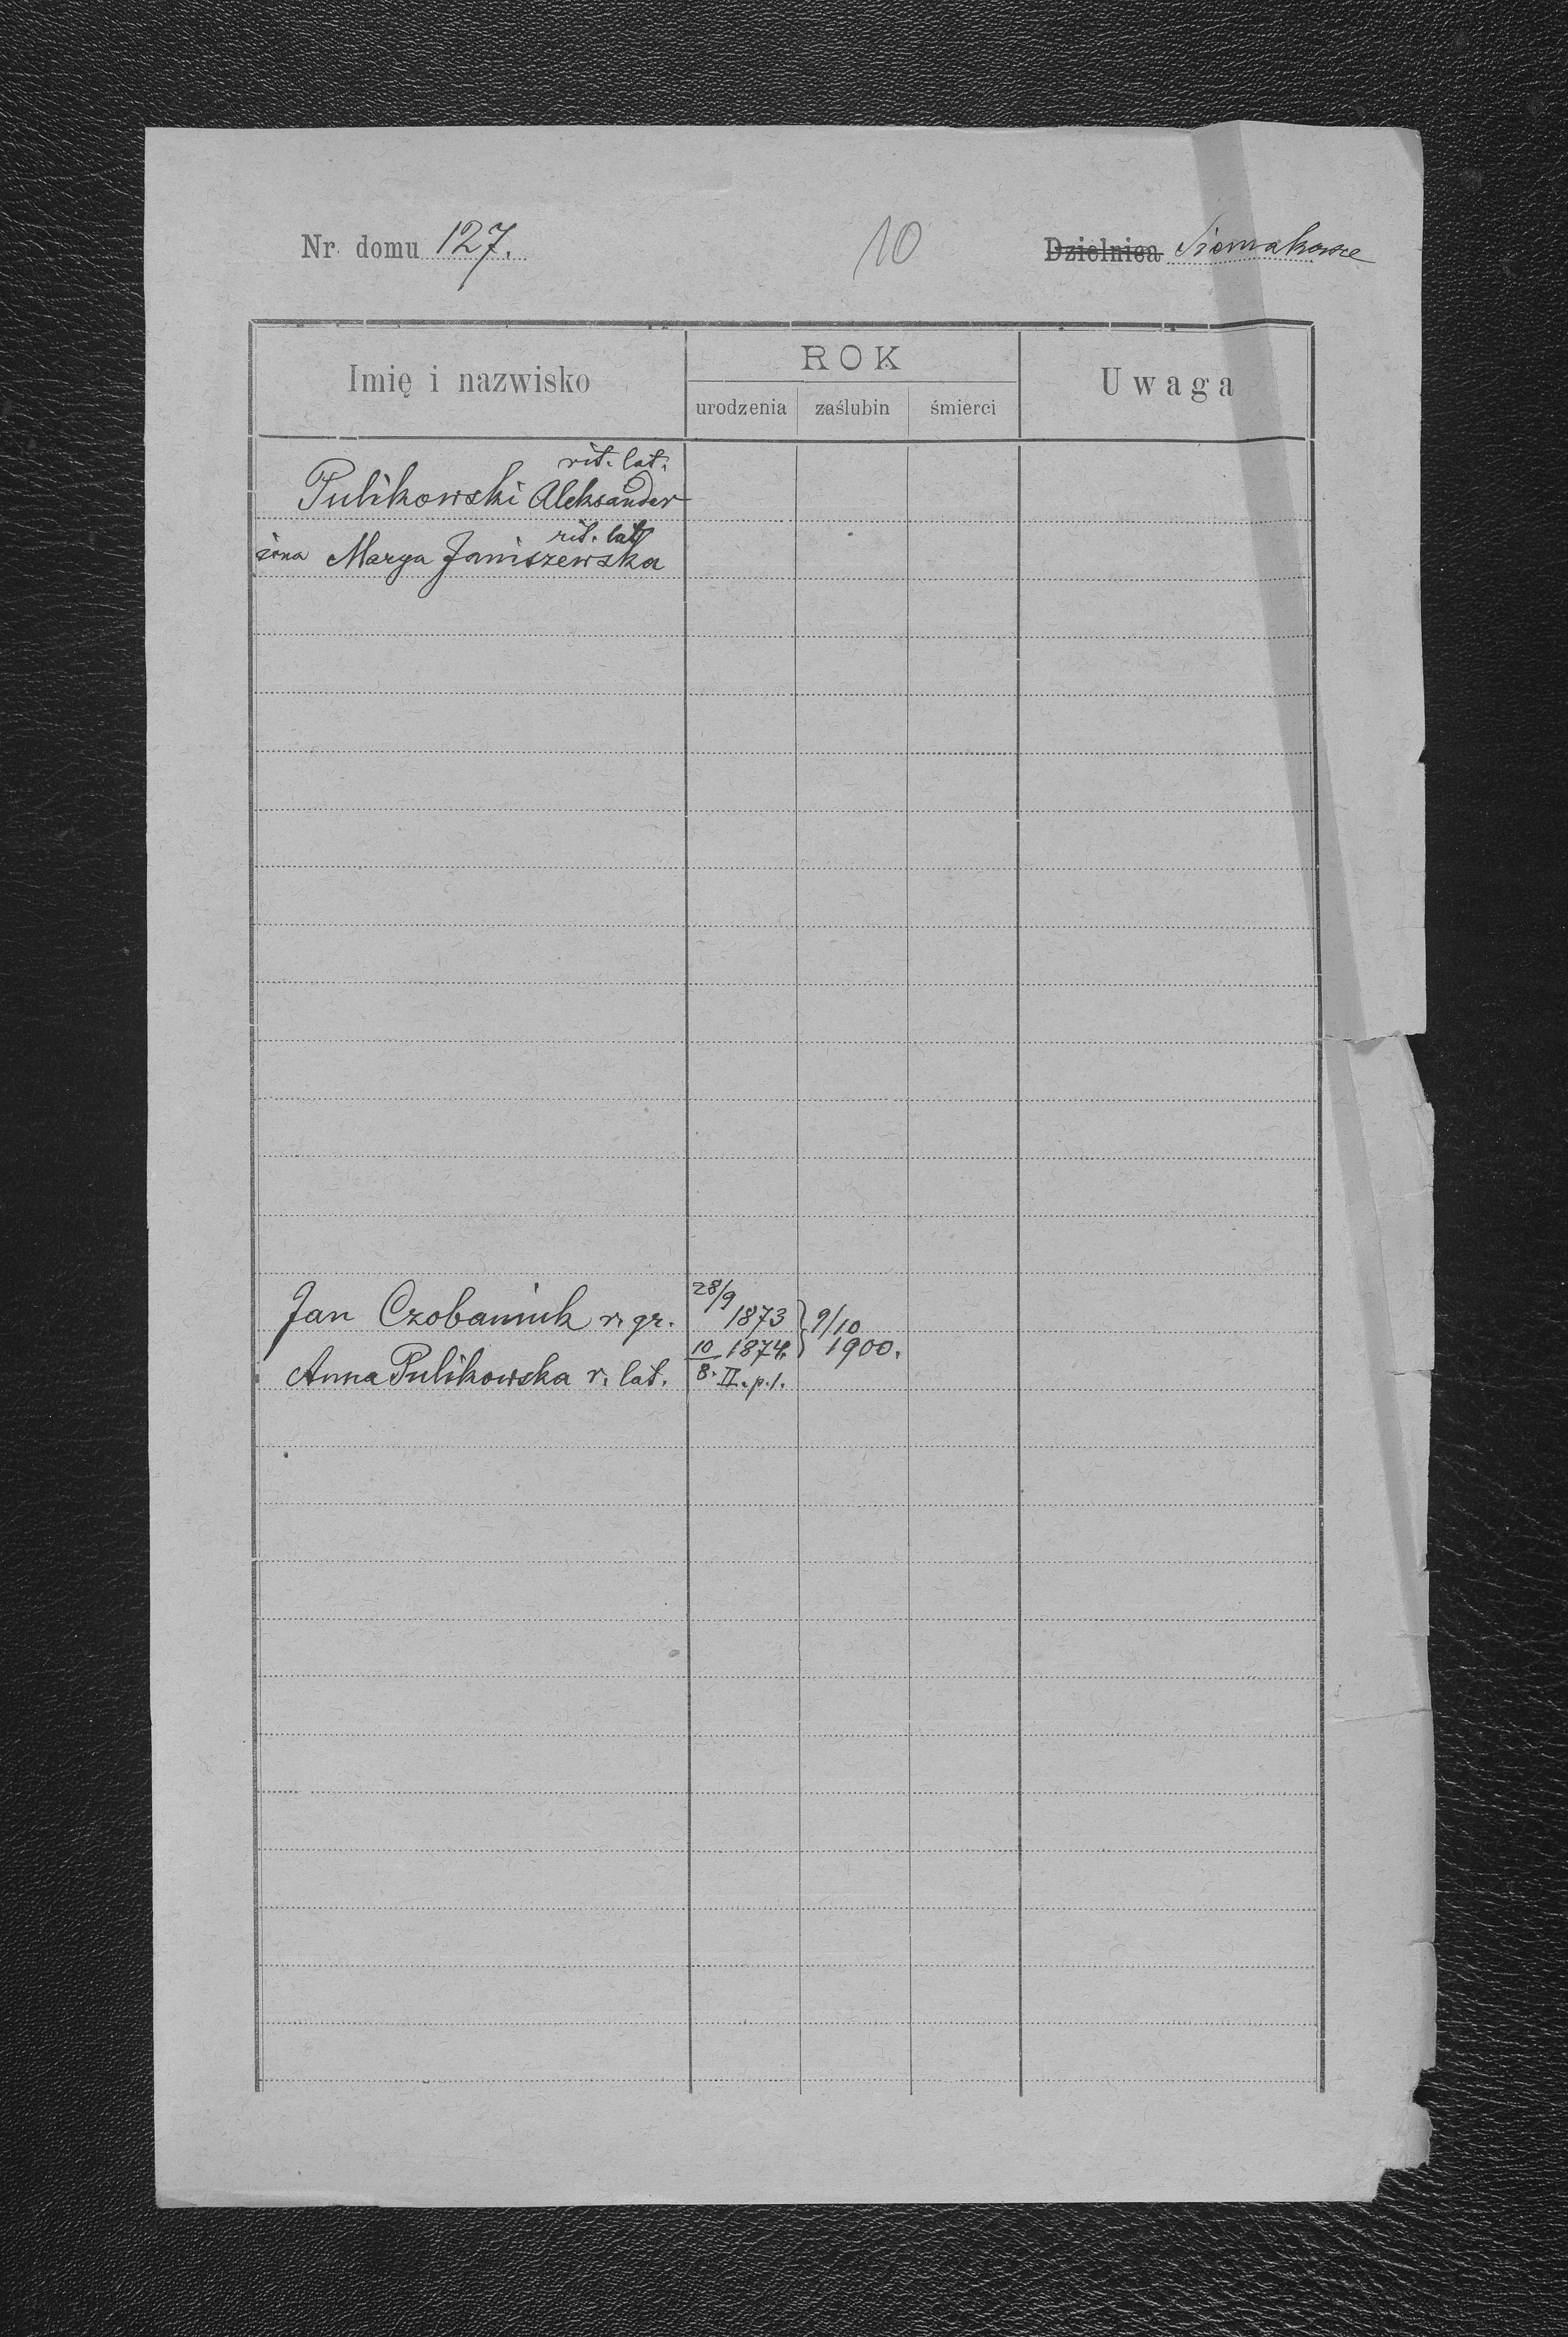 Nr. domu 127. 10 Dzielnica Siemakowce
Imię i nazwisko ROK Uwaga
urodzenia zaślubin śmierci
rit. lat.
Pulikowski Aleksander
rit. lat
żona Marya Janiszewska
28/9
Jan Czobaniuk r. gr. 1873 9/10
10 1874. 1900.
Anna Pulikowska r. lat. 8. II. p. l.